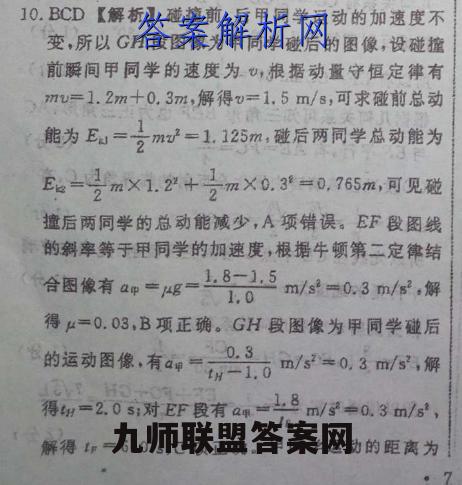 10. BCD 【解析】碰撞前、后甲同学运动的加速度不
答案解析网
变,所以GH段图像为甲同学碰后的图像,设碰撞
前瞬间甲同学的速度为v,根据动量守恒定律有
mv=1.2m+0.3m,解得v=1.5 m/s,可求碰前总动
能为Ek1=1/2mv²=1.125m,碰后两同学总动能为
Ek2=1/2m×1.2²+1/2m×0.3²=0.765m,可见碰
撞后两同学的总动能减少,A项错误。EF段图线
的斜率等于甲同学的加速度,根据牛顿第二定律结
合图像有a甲=μg=(1.8-1.5)/1.0 m/s²=0.3 m/s²,解
得μ=0.03,B项正确。GH段图像为甲同学碰后
的运动图像,有a甲=0.3/(tH-1.0) m/s²=0.3 m/s²,解
得tH=2.0 s;对EF段有a甲=1.8/tF m/s²=0.3 m/s²,
解得tF=6.0 s,C动的距离为
九师联盟答案网
·7